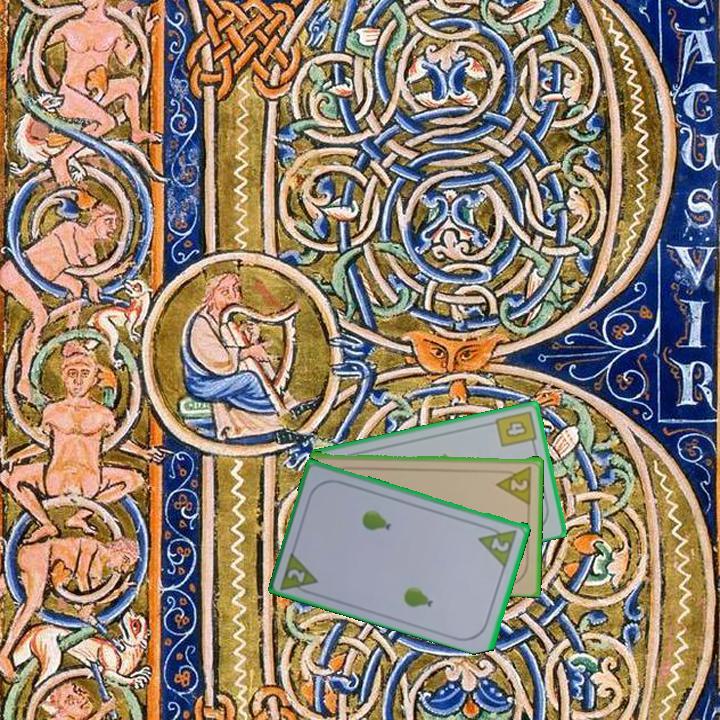 ATUS
VIR
2
2
2